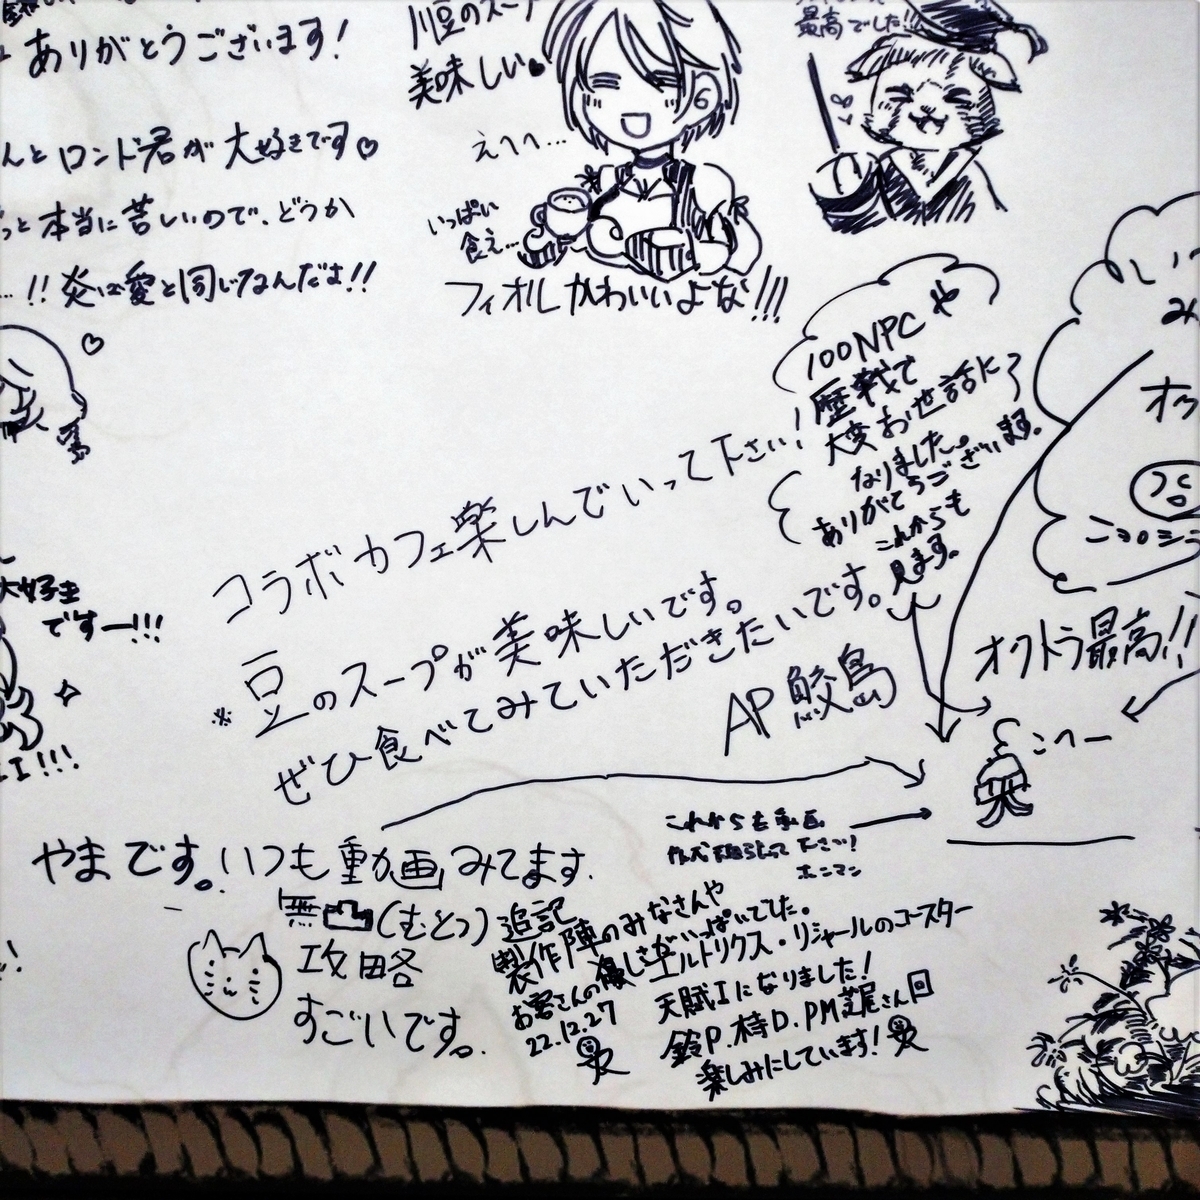 ありがとうございます!
んとロンド君が大好きです♡
っと本当に苦しいので、どうか
…!!炎は愛と同じなんだよ!!
川豆のスープ
美味しい♥
えへへ…
いっぱい
食え…
フィオルかわいいよな!!!
最高でした!!
100NPCや
歴戦で
大変お世話に
なりました。
ありがとうございます。
これからも
見ます。
コラボカフェ楽しんでいって下さい!
※豆のスープが美味しいです。
ぜひ食べてみていただきたいです。
AP 鮫島
大好き
ですー!!!
オクトラ最高!!
こへー
やまです。いつも動画みてます。
無凸(むとつ)
攻略
すごいです。
これからも動画
下さい!
ホンマン
追記
製作陣のみなさんや
お客さんの優しさがいっぱいでした。
22.12.27
エルトリクス・リシャールのコースター
天賦Ⅰになりました!
鈴P.柊D.PM芝尾さん回
楽しみにしています!